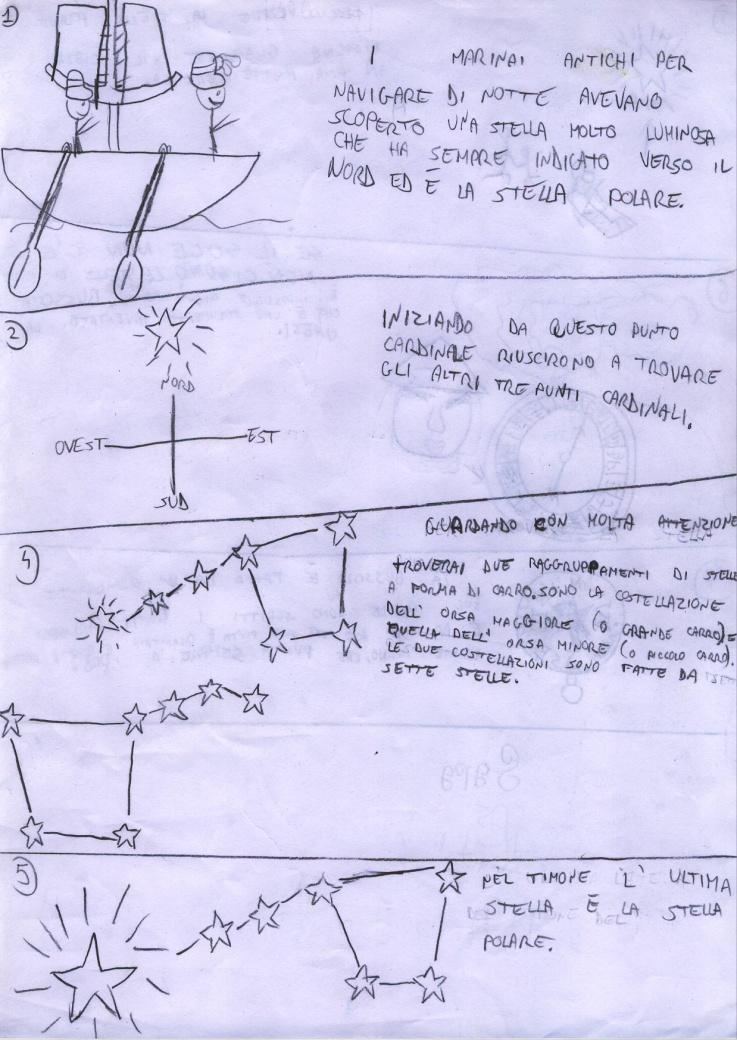 1)
I MARINAI ANTICHI PER
NAVIGARE DI NOTTE AVEVANO
SCOPERTO UNA STELLA MOLTO LUMINOSA
CHE HA SEMPRE INDICATO VERSO IL
NORD ED È LA STELLA POLARE.
2
NORD
OVEST
EST
SUD
INIZIANDO DA QUESTO PUNTO
CARDINALE RIUSCIRONO A TROVARE
GLI ALTRI TRE PUNTI CARDINALI.
4
GUARDANDO CON MOLTA ATTENZIONE
TROVERAI DUE RAGGRUPPAMENTI DI STELLE
A FORMA DI CARRO, SONO LA COSTELLAZIONE
DELL' ORSA MAGGIORE (O GRANDE CARRO) E
QUELLA DELL' ORSA MINORE (O PICCOLO CARRO).
LE DUE COSTELLAZIONI SONO FATTE DA
SETTE STELLE.
5
NEL TIMONE L' ULTIMA
STELLA È LA STELLA
POLARE.